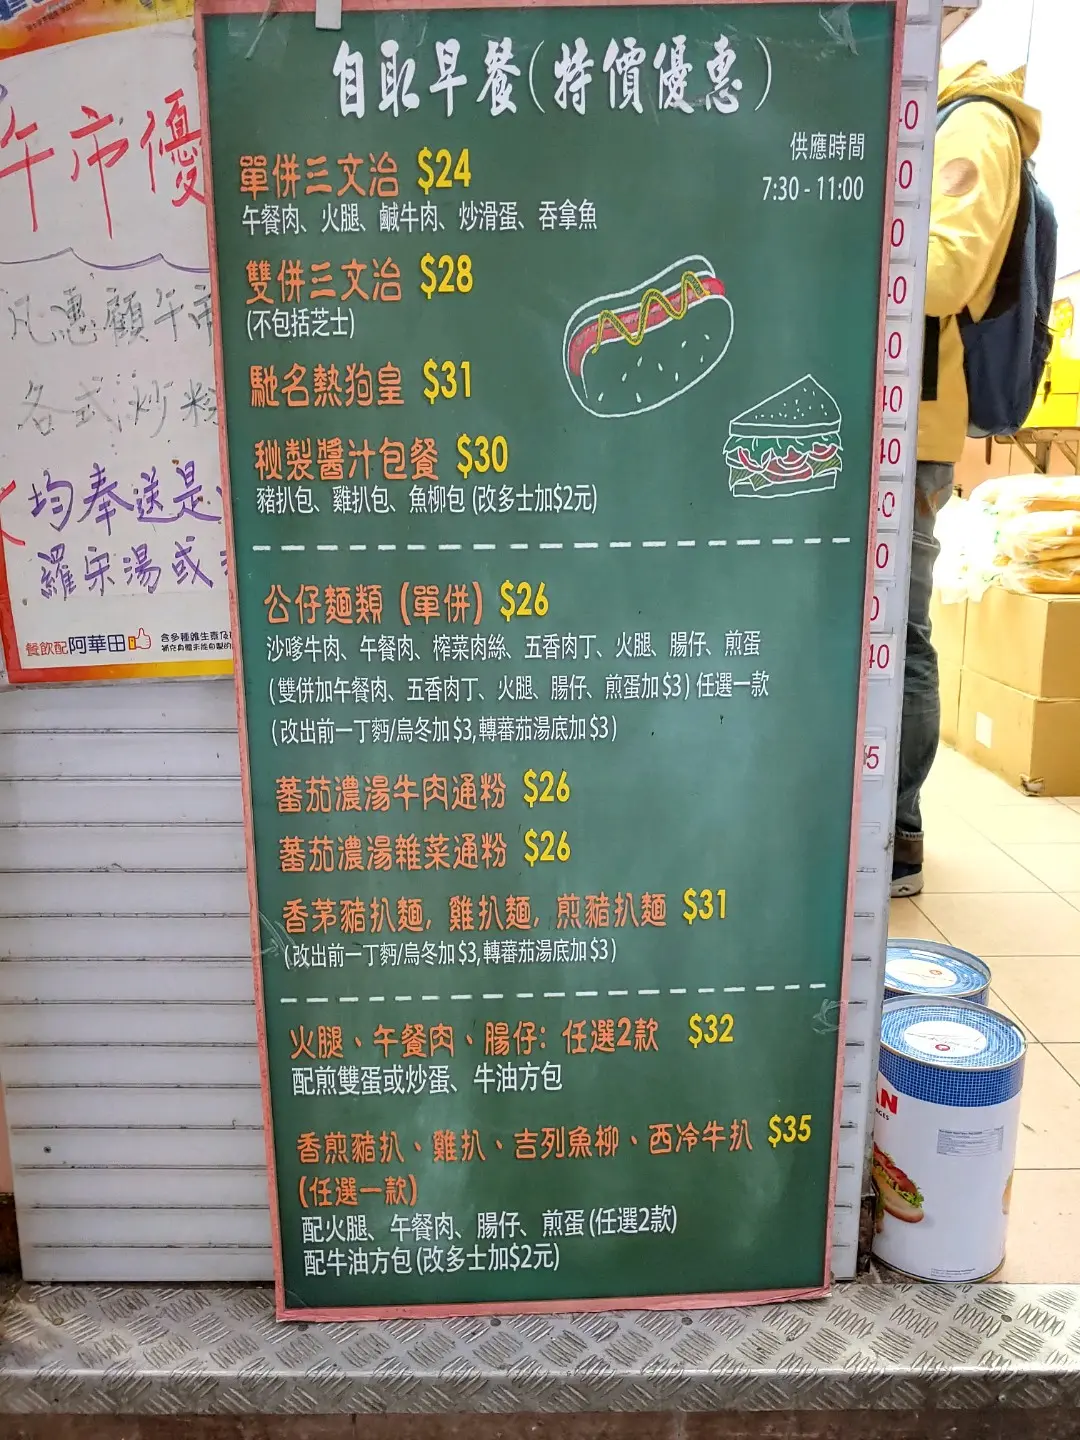 自取早餐(特價優惠)
供應時間
7:30 - 11:00
單併三文治 $24
午餐肉、火腿、鹹牛肉、炒滑蛋、吞拿魚
雙併三文治 $28
(不包括芝士)
馳名熱狗皇 $31
秘製醬汁包餐 $30
豬扒包、雞扒包、魚柳包 (改多士加$2元)
公仔麵類 (單併) $26
沙嗲牛肉、午餐肉、榨菜肉絲、五香肉丁、火腿、腸仔、煎蛋
(雙併加午餐肉、五香肉丁、火腿、腸仔、煎蛋加$3) 任選一款
(改出前一丁麪/烏冬加$3,轉蕃茄湯底加$3)
蕃茄濃湯牛肉通粉 $26
蕃茄濃湯雜菜通粉 $26
香茅豬扒麵, 雞扒麵, 煎豬扒麵 $31
(改出前一丁麪/烏冬加$3,轉蕃茄湯底加$3)
火腿、午餐肉、腸仔: 任選2款 $32
配煎雙蛋或炒蛋、牛油方包
香煎豬扒、雞扒、吉列魚柳、西冷牛扒 $35
(任選一款)
配火腿、午餐肉、腸仔、煎蛋 (任選2款)
配牛油方包 (改多士加$2元)
午市優
凡惠顧午市
各式炒粉
均奉送是
羅宋湯或
餐飲配阿華田
含多種維生素及